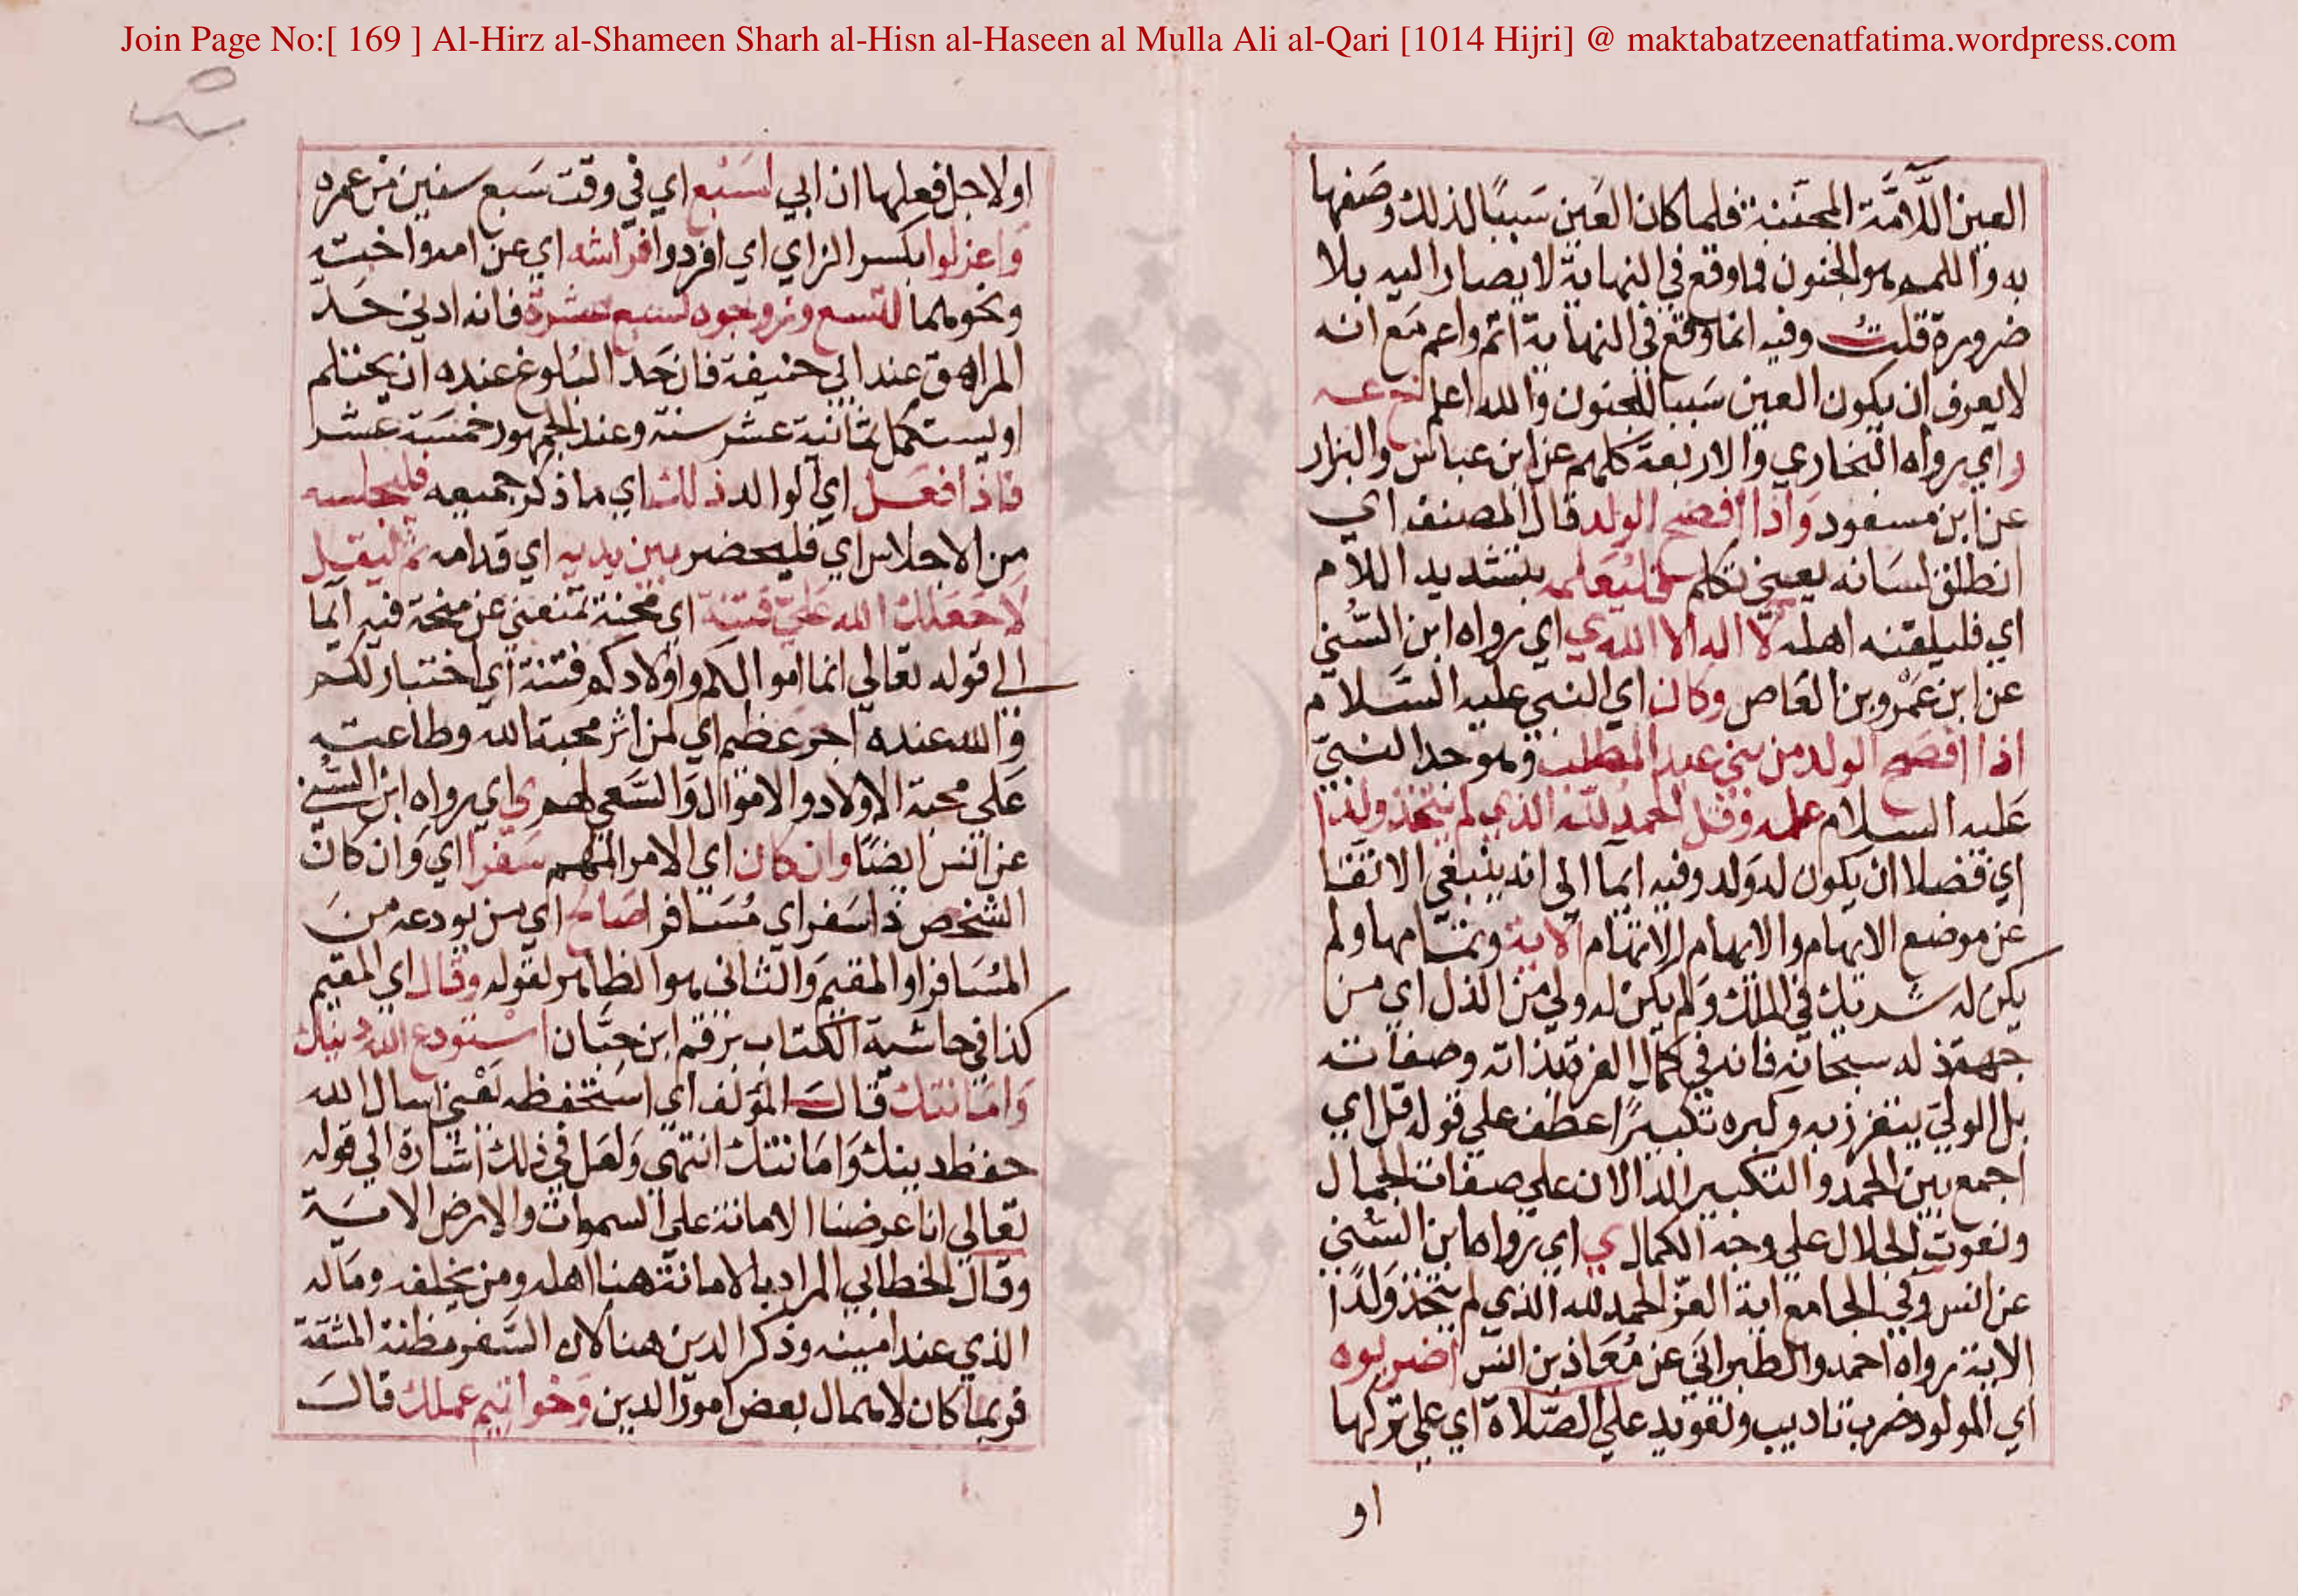 Join Page No:[ 169 ] Al-Hirz al-Shameen Sharh al-Hisn al-Haseen al Mulla Ali al-Qari [1014 Hijri] @ maktabatzeenatfatima.wordpress.com
العين اللَّامَّة المجننة فلما كان العَين سَببًا لذلك وصَفها
به واللمم هو الجنون فما وقع في النهاية لا يصار اليه بلا
ضرورة قلت وفيه انما وقع في النهاية اتم واعم مع انه
لا يعرف ان يكون العين سَببا للجنون والله اعلم خ عه
ر اي رواه البخاري والاربعة كلهم عن ابن عباس والبزار
عن ابن مسعود وَاذا افصح الولد قال المصنف اي
انطلق لسَانه يعني تكلم فليُعَلمه بتشديد اللام
اي فليلقنه اهله لا اله الا الله ي اي رواه ابن السُّني
عن ابن عَمْرو بن العَاص وكان اي النبي عليه السَّلام
اذا افصَح الولد من بني عبد المطلب وهو جد النبيّ
عَليه السلام علمه وقل الحمد لله الذي لم يتخذ ولدا
اي فضلا ان يكون له وَلد وفيه ايما الى انه ينبغي الاتقا
عن موضع الايهام والابهام الاتهام الاية وتمامها ولم
يكن له شريك في الملك وَلم يكن له ولي من الذل اي من
جهة ذله سبحانه فانه في كمال العزة بذاته وصفاته
بل الولي يتعزز به وكبره تكبيرًا عطف علي قوله قل اي
اجمع بين الحمد والتكبير الدالان علي صفات الجمال
ونعوت الجلال علي وجه الكمال ي اي رواه ابن السُّني
عن انس وفي الجامع اية العزّ الحمد لله الذي لم يتخذ وَلدًا
الاية رواه احمد والطبراني عن مُعَاذ بن انس اضربوه
اي المولود ضرب تاديب وتعويد علي الصَّلاة اي علي تركها
او
او لاجل فعلها ان ابي لسَبْع اي في وقت سَبع سنين من عمره
وَاعزلوا بكسر الزاي اي افردوا فراشه اي عن امه واخته
ونحوهما لتسع وزوجوه لسبع عشرة فانه ادني حَد
المراهق عند ابي حنيفة فان حَد البُلوغ عنده ان يحتلم
او يستكمل ثمانية عشر سنة وعند الجمهور خمسَة عشر
فاذا فعَل اي الوالد ذلك اي ما ذكر جميعه فليجلسه
من الاجلاس اي فليحضر بين يديه اي قدامه ثم ليقل
لا جَعَلك الله عَليّ فتنة اي محنة تمنعني عن منحة فيه ايما
الي قوله تعالي انما اموالكم واولادكم فتنة اي اختبار لكم
والله عنده اجر عَظيم اي لمن اثر محبة الله وطاعته
عَلي محبة الاولاد والاموال وَالسَّعي لهم ي اي رواه ابن السُّني
عن انس ايضًا وان كان اي الامر المهم سَفرا اي وَان كان
الشخص ذا سَفر اي مُسَافرا صَافح اي من يودعه من
المسَافر او المقيم وَالثاني هو الظاهر لقوله وقال اي المقيم
كذا في حاشية الكتاب برقم ابن حبَّان استودع الله دينك
وَامَانتك قالَ المؤلف اي استحفظه يَعْني اسال الله
حفظ دينك وَامَانتك انتهي وَلعَل في ذلك اشارة الي قوله
تعَالي انا عرضنا الامانة علي السموات والارض الاية
وقال الخطابي المراد بالامانة هنا اهله ومن يخلفه ومَاله
الذي عند امينه وذكر الدين هنا لان السَّفر مظنة المشقة
فربما كان لاهمال بعض امور الدين وَخواتيم عملك قالَ